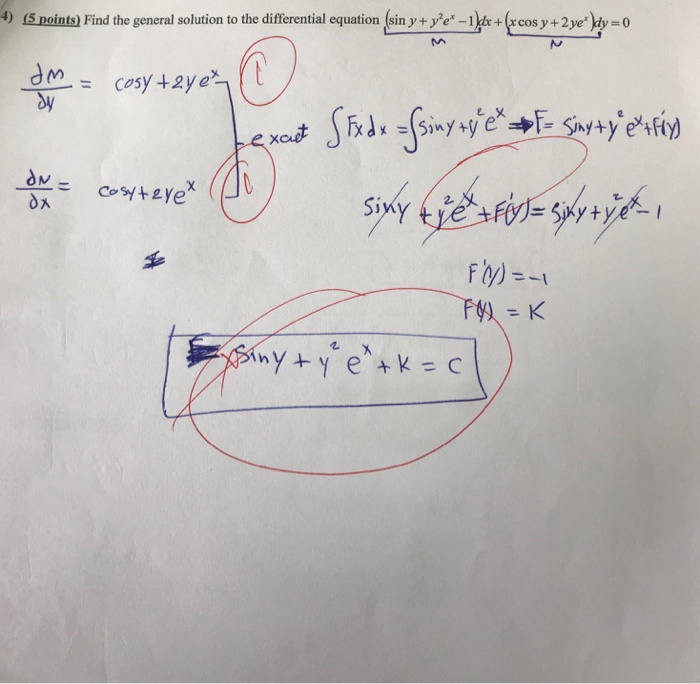 4) (5 points) Find the general solution to the differential equation (sin y + y²eˣ − 1)dx + (x cos y + 2yeˣ)dy = 0
M N
∂M/∂y = cosy + 2yeˣ 1
exact ∫Fxdx = ∫siny + y²eˣ ⇒ F = siny + y²eˣ + F(y)
∂N/∂x = cosy + 2yeˣ 1
siny + y²eˣ + F'(y) = siny + y²eˣ − 1
F'(y) = −1
F(y) = K
xsiny + y²eˣ + K = C